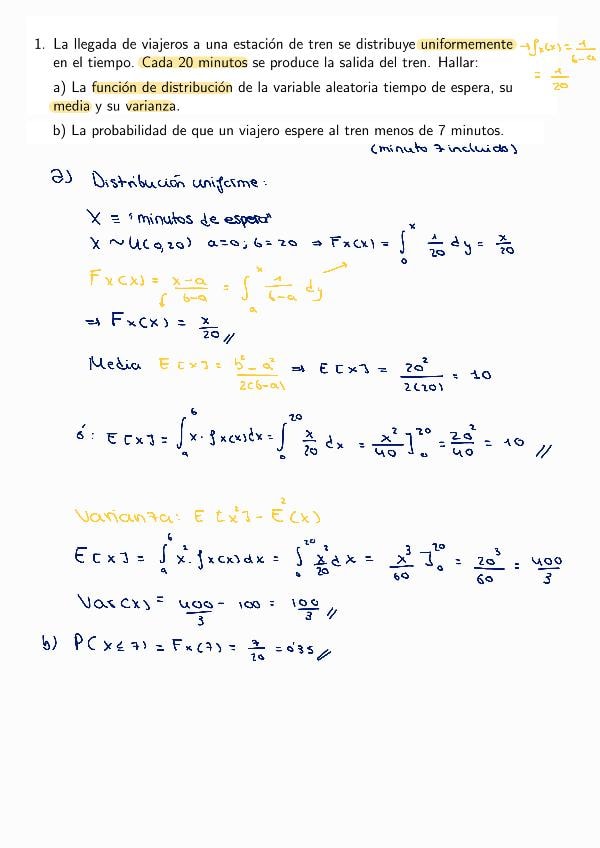 1. La llegada de viajeros a una estación de tren se distribuye uniformemente → fx(x) = 1/(b-a)
en el tiempo. Cada 20 minutos se produce la salida del tren. Hallar: = 1/20
a) La función de distribución de la variable aleatoria tiempo de espera, su
media y su varianza.
b) La probabilidad de que un viajero espere al tren menos de 7 minutos.
(minuto 7 incluido)
a) Distribución uniforme:
X ≡ "minutos de espera"
X ~ U(0,20) a=0; b=20 ⇒ Fx(x) = ∫₀ˣ 1/20 dy = x/20
Fx(x) = (x-a)/(b-a) = ∫ₐˣ 1/(b-a) dy
⇒ Fx(x) = x/20 //
Media E[x] = (b²-a²)/(2(b-a)) ⇒ E[x] = 20²/(2(20)) = 10
ó: E[x] = ∫ₐᵇ x·fx(x)dx = ∫₀²⁰ x/20 dx = x²/40 ]₀²⁰ = 20²/40 = 10 //
Varianza: E[x²] - E²(x)
E[x] = ∫ₐᵇ x²·fx(x)dx = ∫₀²⁰ x²/20 dx = x³/60 ]₀²⁰ = 20³/60 = 400/3
Var(x) = 400/3 - 100 = 100/3 //
b) P(x ≤ 7) = Fx(7) = 7/20 = 0'35 //